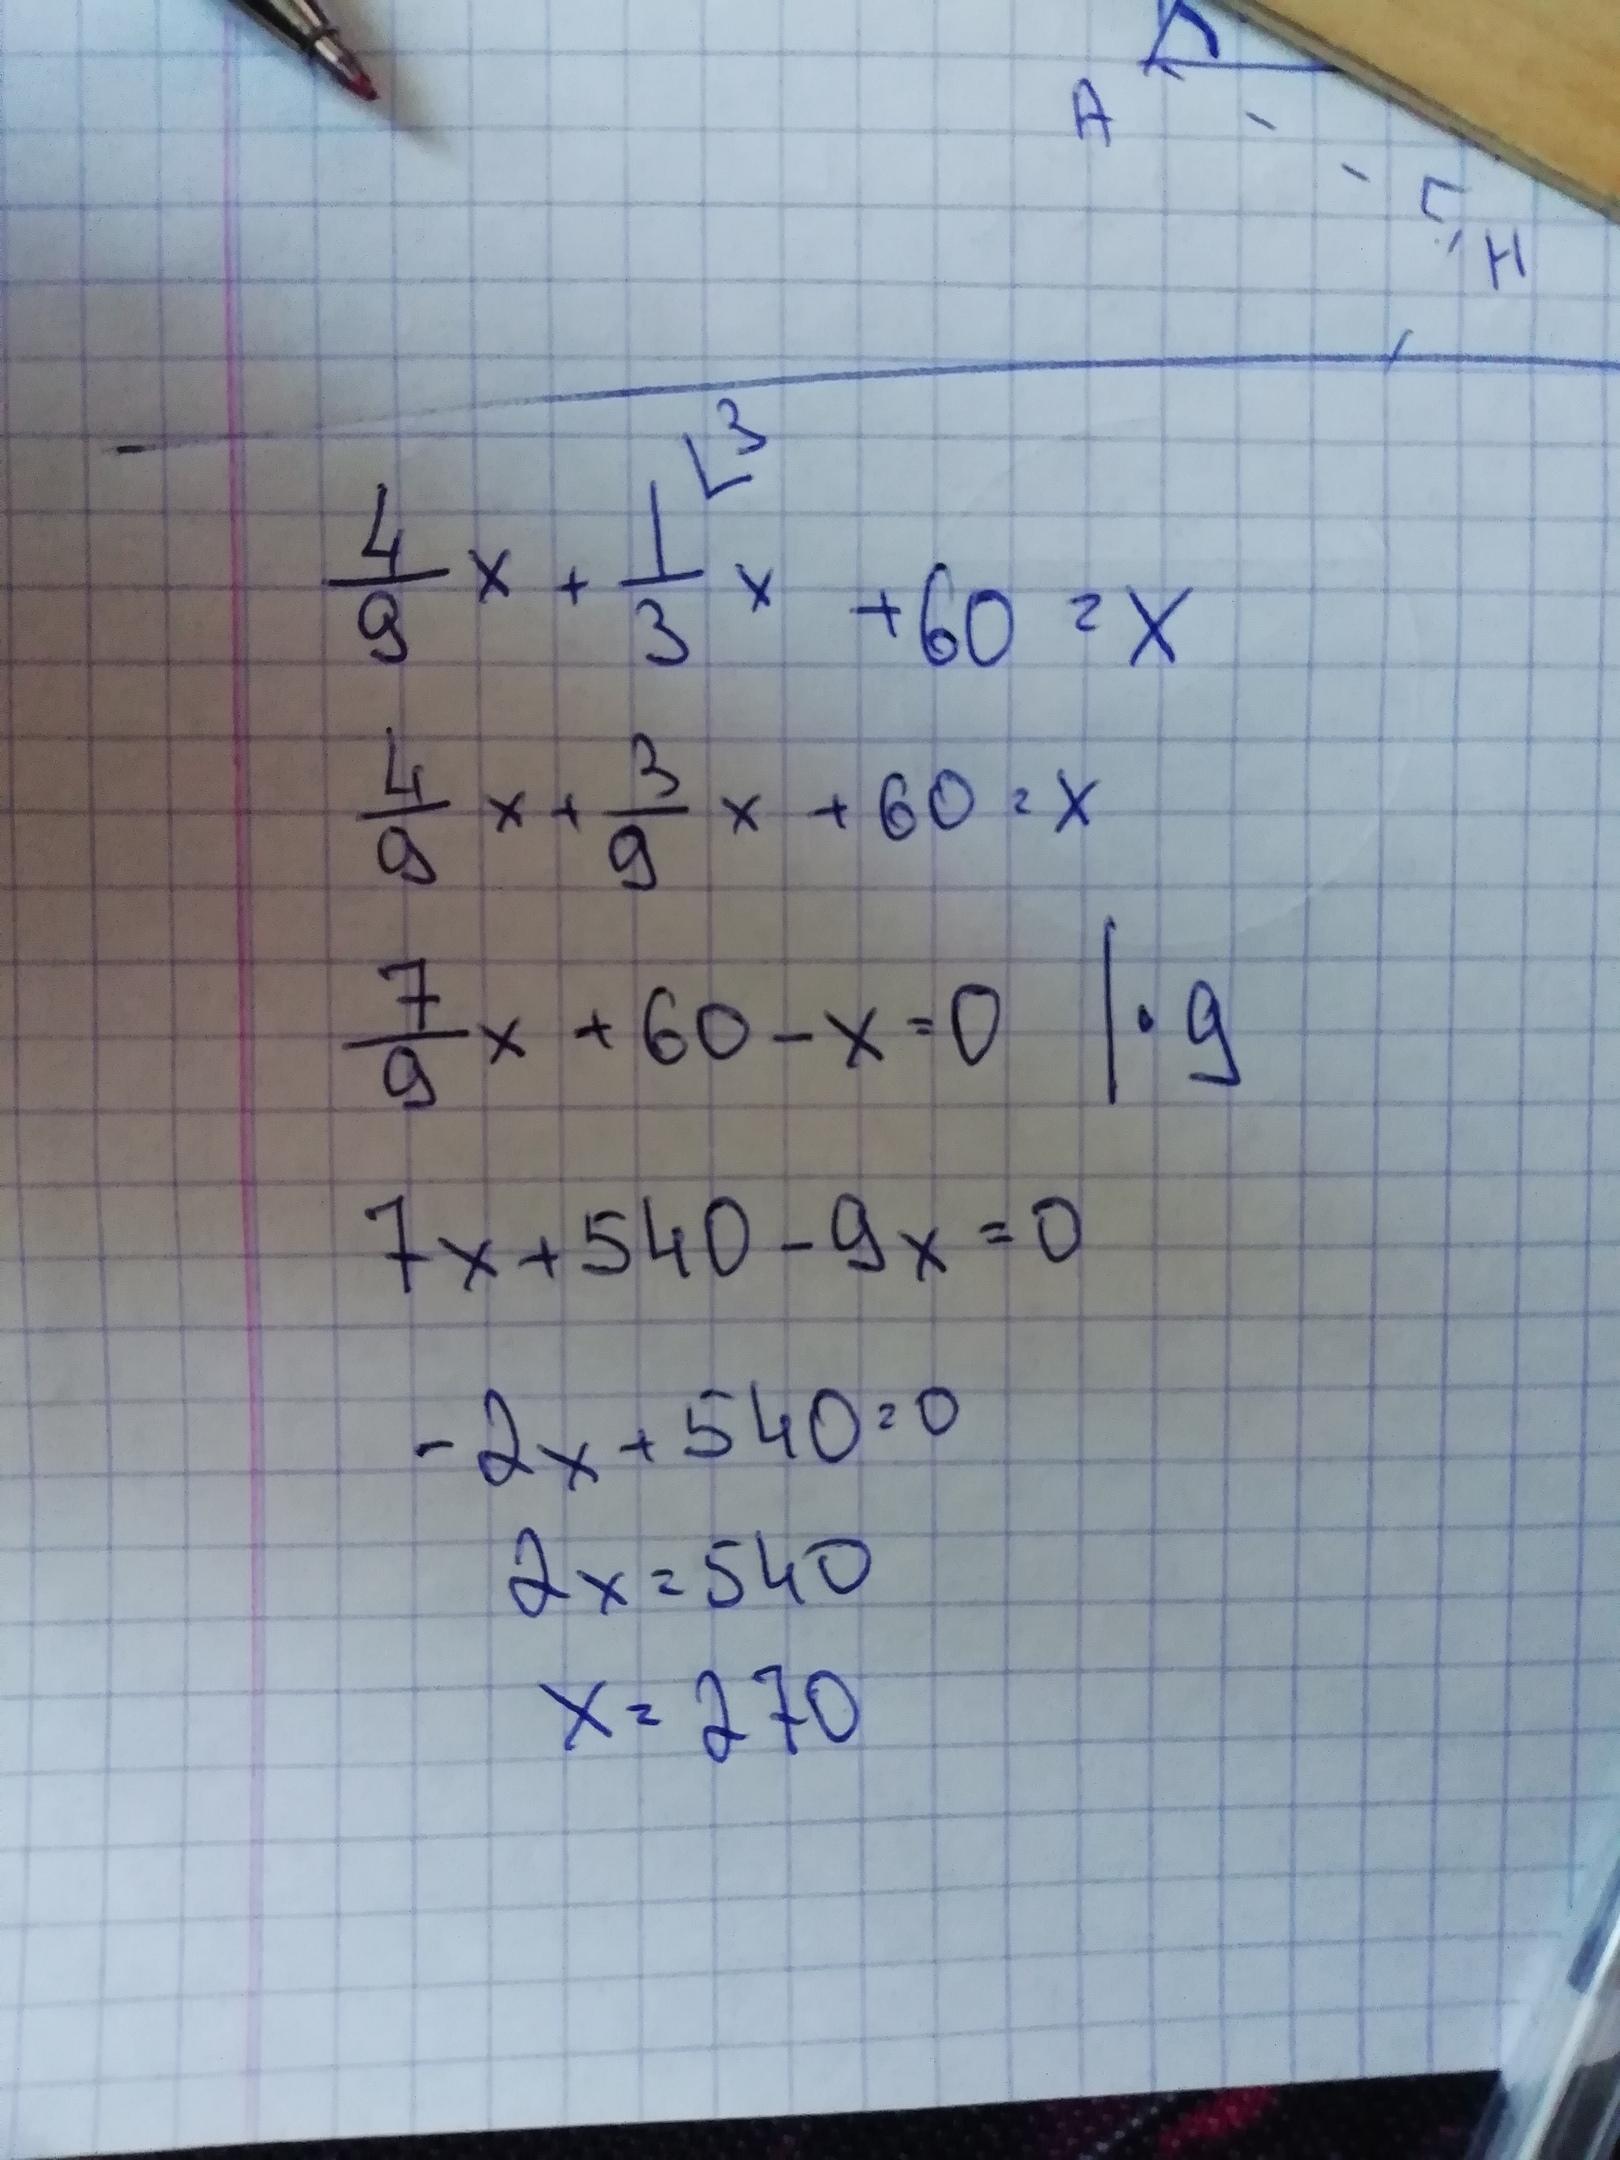 A
H
3
4/9 x + 1/3 x + 60 = x
4/9 x + 3/9 x + 60 = x
7/9 x + 60 - x = 0 | · 9
7x + 540 - 9x = 0
-2x + 540 = 0
2x = 540
x = 270